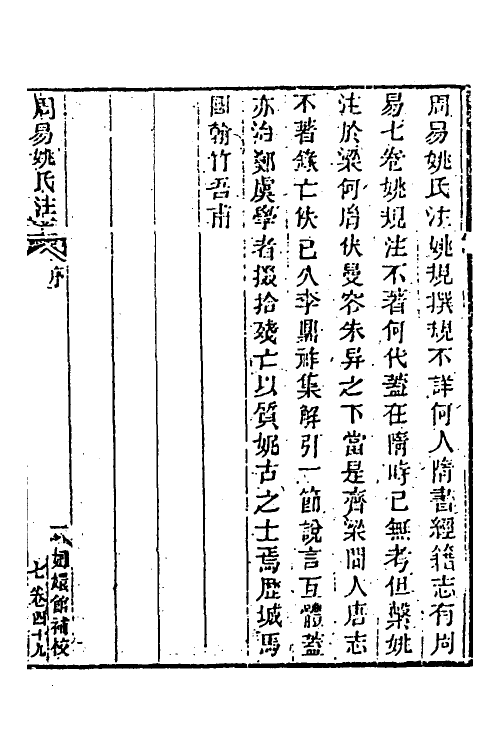 周易姚氏注姚規撰規不詳何人隋書經籍志有周
易七卷姚規注不著何代蓋在隋時已無考但槩姚
注於梁何胤伏曼容朱异之下當是齊梁間人唐志
不著錄亡佚已久李鼎祚集解引一節說言互體蓋
亦治鄭虞學者掇拾殘亡以質好古之士焉歷城馬
國翰竹吾甫
周易姚氏注
序
一
嫏嬛館補校
七卷四十九